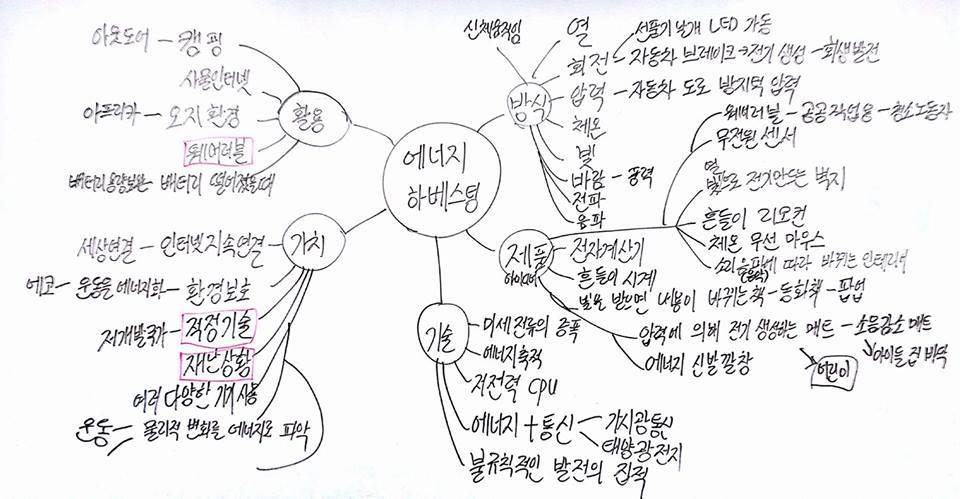 에너지
하베스팅
활용
아웃도어 - 캠핑
사물인터넷
아프리카 - 오지환경
웨어러블
배터리 떨어졌을때
가치
세상연결 - 인터넷 지속연결
에코 - 운동을 에너지화 - 환경보호
저개발국가 - 적정기술
재난상황
여러 다양한 기기 사용
운동 - 물리적 변화를 에너지로 파악
방식
신체움직임
열
회전
선풍기 날개 LED 가동
자동차 브레이크→전기 생성 - 회생발전
압력 - 자동차 도로 방지턱 압력
체온
빛
바람 - 풍력
전파
음파
제품
아이디어
웨어러블 - 공공작업용 - 청소노동자
무전원 센서
열
빛으로 전기만드는 벽지
흔들이 리모컨
체온 무선 마우스
소리음파에 따라 바뀌는 인테리어
(음악)
전자계산기
흔들이 시계
빛을 받으면 내용이 바뀌는 책 - 동화책 - 팝업
압력에 의해 전기 생성하는 매트 - 소음감소 매트
아이들 집 바닥
어린이
에너지 신발깔창
기술
미세전류의 증폭
에너지축적
저전력 CPU
에너지 + 통신
가시광통신
태양광전지
불규칙적인 발전의 집적